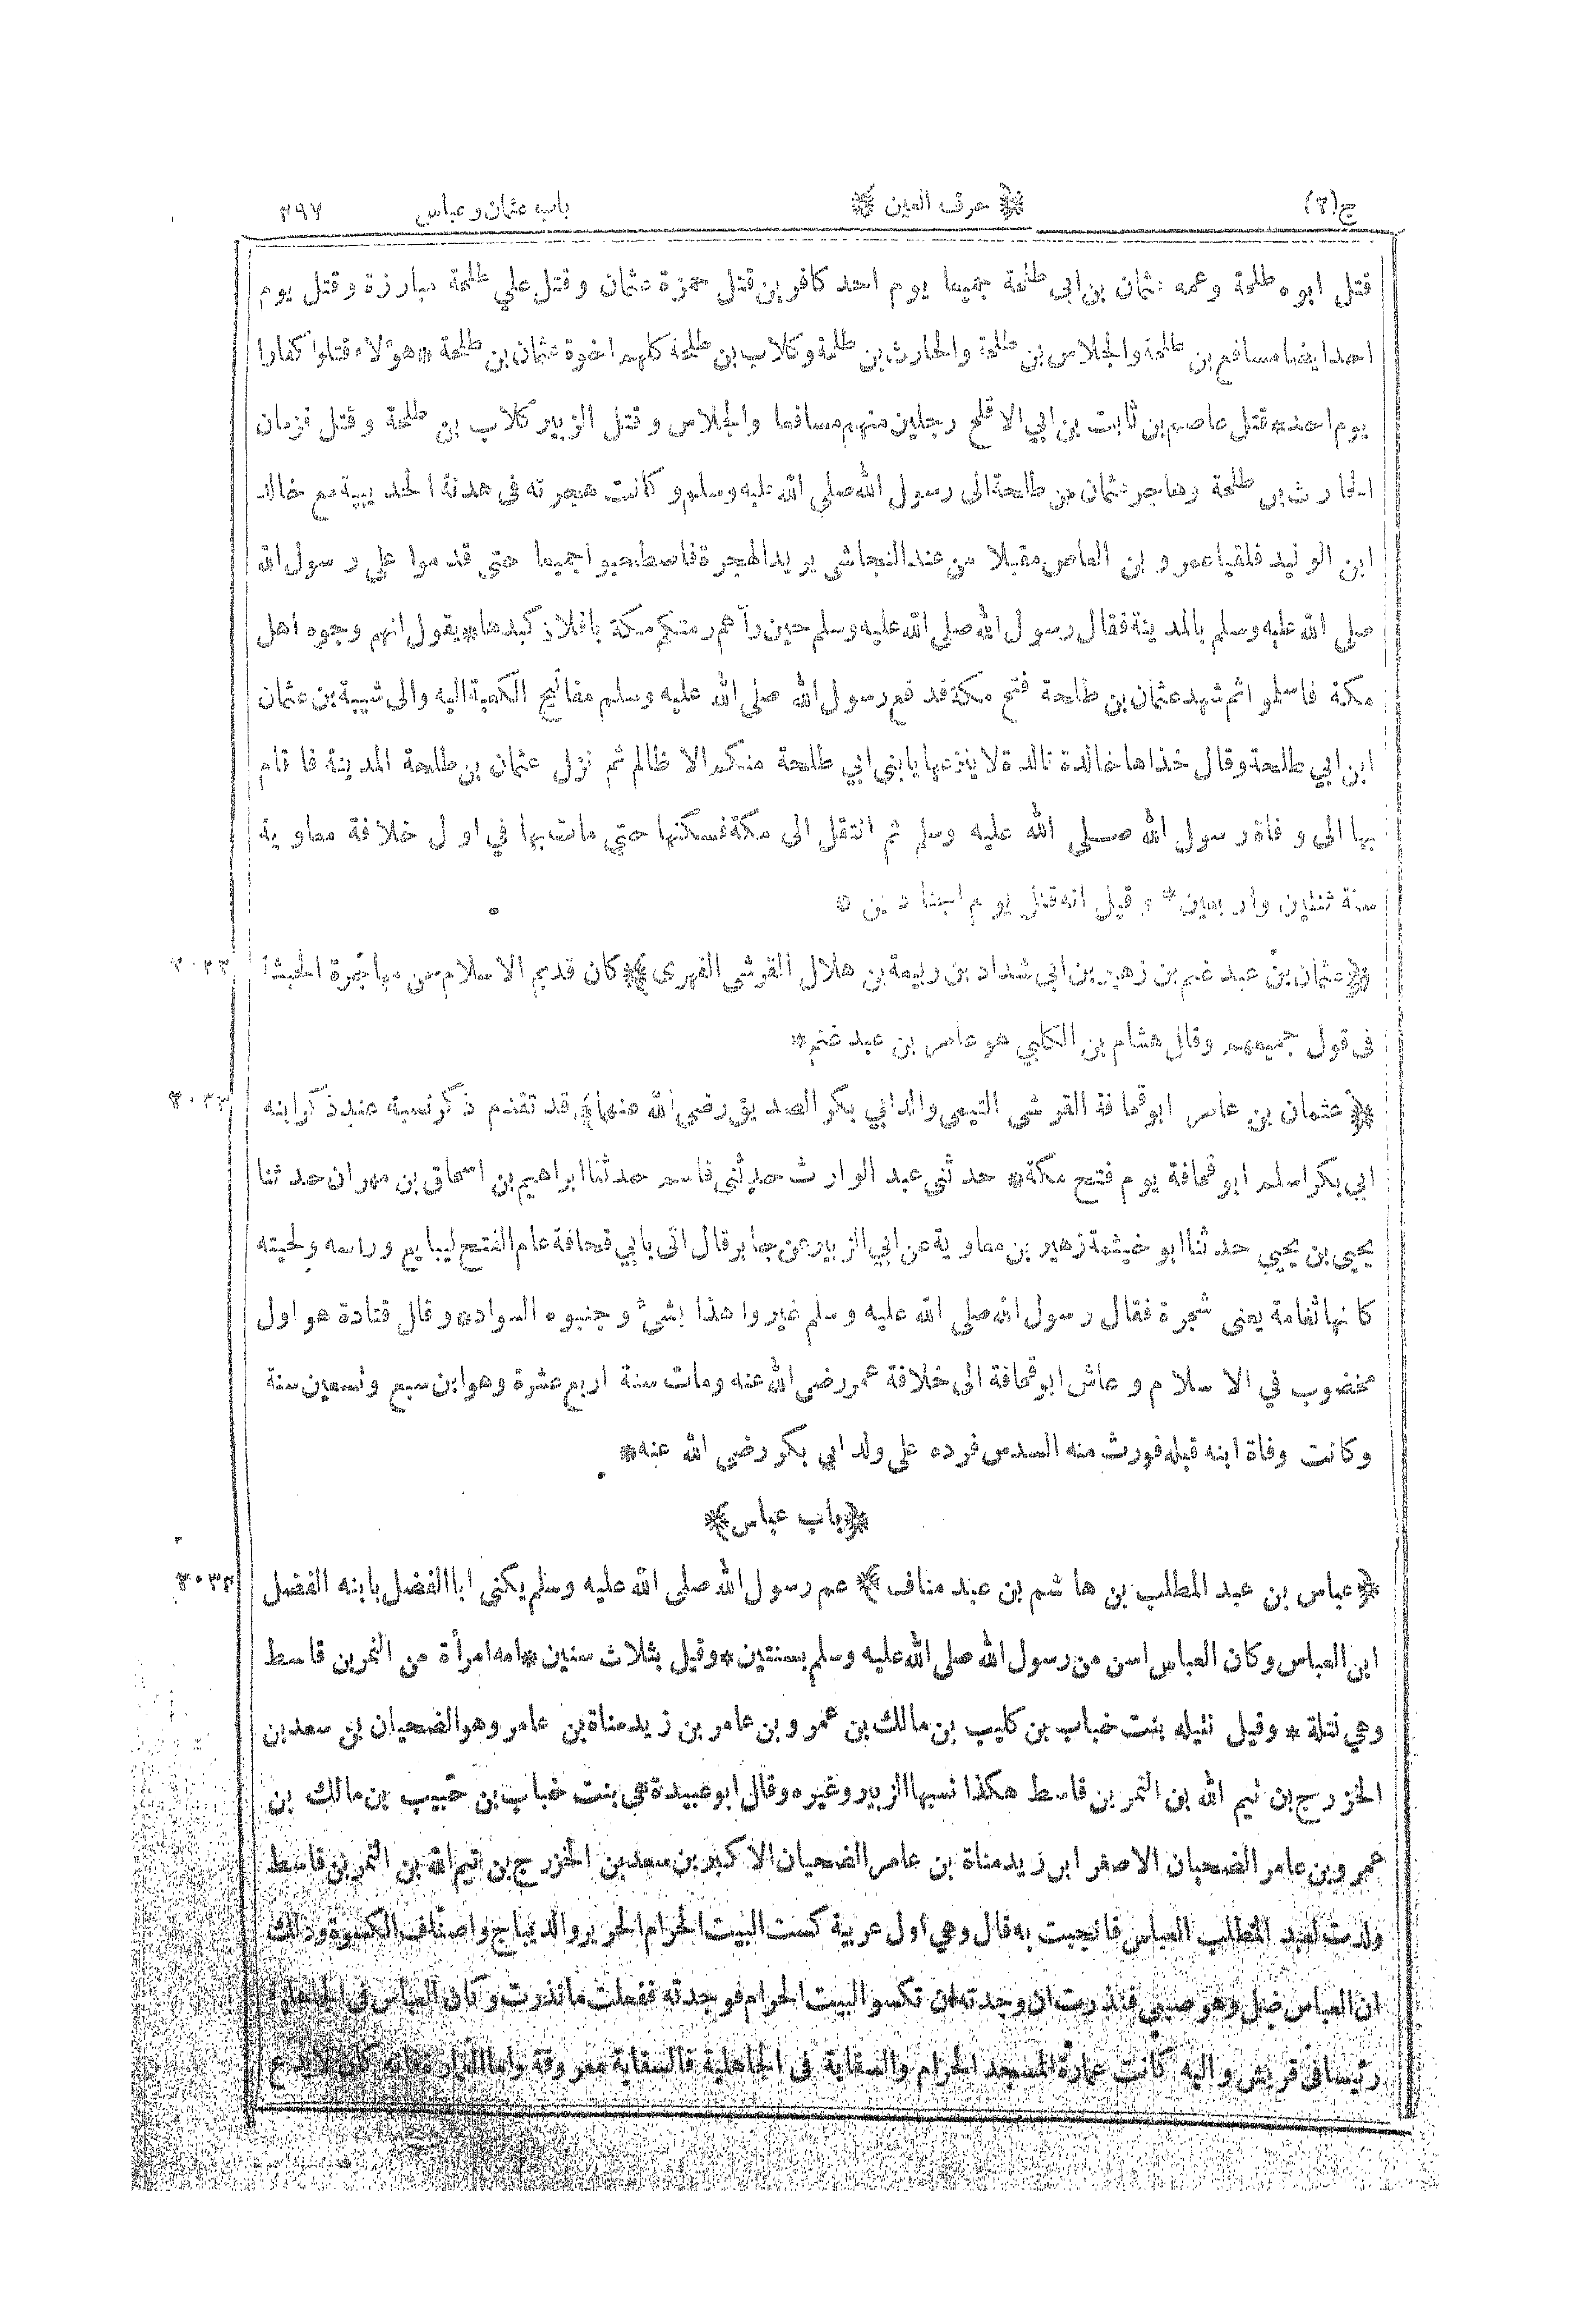 ج(٢) ﴿ حرف العين ﴾ باب عثمان وعباس ٤٩٧
قتل ابوه طلحة وعمه عثمان بن ابى طلحة جميعا يوم احد كافرين قتل حمزة عثمان وقتل علي طلحة مبارزة وقتل يوم
احد ايضا مسافع بن طلحة والجلاس بن طلحة والحارث بن طلحة وكلاب بن طلحة كلهم اخوة عثمان بن طلحة * هؤلاء قتلوا كفارا
يوم احد * قتل عاصم بن ثابت بن ابي الاقلح رجلين منهم مسافعا والجلاس وقتل الزبير كلاب بن طلحة وقتل قزمان
الحارث بن طلحة وهاجر عثمان بن طلحة الى رسول الله صلى الله عليه وسلم وكانت هجرته فى هدنة الحديبية مع خالد
ابن الوليد فلقيا عمرو بن العاص مقبلا من عند النجاشى يريد الهجرة فاصطحبوا جميعا حتى قدموا على رسول الله
صلى الله عليه وسلم بالمدينة فقال رسول الله صلى الله عليه وسلم حين رآهم رمتكم مكة بافلاذ كبدها * يقول انهم وجوه اهل
مكة فاسلموا ثم شهد عثمان بن طلحة فتح مكة فدفع رسول الله صلى الله عليه وسلم مفاتيح الكعبة اليه والى شيبة بن عثمان
ابن ابي طلحة وقال خذاها خالدة تالدة لا ينزعها يا بنى ابي طلحة منكم الا ظالم ثم نزل عثمان بن طلحة المدينة فاقام
بها الى وفاة رسول الله صلى الله عليه وسلم ثم انتقل الى مكة فسكنها حتى مات بها في اول خلافة معاوية
سنة ثنتين واربعين * وقيل انه قتل يوم اجنادين *
﴿ عثمان بن عبد غنم بن زهير بن ابي شداد بن ربيعة بن هلال القرشى الفهرى ﴾ كان قديم الاسلام من مهاجرة الحبشة
فى قول جميعهم وقال هشام بن الكلبي هو عامر بن عبد غنم *
﴿ عثمان بن عامر ابو قحافة القرشى التيمى والد ابي بكر الصديق رضى الله عنهما ﴾ قد تقدم ذكر نسبه عند ذكر ابنه
ابي بكر اسلم ابو قحافة يوم فتح مكة * حدثنى عبد الوارث حدثنى قاسم حدثنا ابراهيم بن اسحاق بن مهران حدثنا
يحيى بن يحيي حدثنا ابو خيثمة زهير بن معاوية عن ابي الزبير عن جابر قال اتى بابي قحافة عام الفتح ليبايع وراسه ولحيته
كانها ثغامة يعنى شجرة فقال رسول الله صلى الله عليه وسلم غيروا هذا بشئ وجنبوه السواد * وقال قتادة هو اول
مخضوب في الاسلام وعاش ابو قحافة الى خلافة عمر رضى الله عنه ومات سنة اربع عشرة وهو ابن سبع وتسعين سنة
وكانت وفاة ابنه قبله فورث منه السدس فرده على ولد ابي بكر رضى الله عنه *
﴿ باب عباس ﴾
﴿ عباس بن عبد المطلب بن هاشم بن عبد مناف ﴾ عم رسول الله صلى الله عليه وسلم يكنى ابا الفضل بابنه الفضل
ابن العباس وكان العباس اسن من رسول الله صلى الله عليه وسلم بسنتين * وقيل بثلاث سنين * امه امرأة من النمر بن قاسط
وهي نتلة * وقيل نتيله بنت خباب بن كليب بن مالك بن عمرو بن عامر بن زيد مناة بن عامر وهو الضحيان بن سعد بن
الخزرج بن تيم الله بن النمر بن قاسط هكذا نسبها الزبير وغيره وقال ابو عبيدة هي بنت خباب بن حبيب بن مالك بن
عمرو بن عامر الضحيان الاصغر ابن زيد مناة بن عامر الضحيان الاكبر بن سعد بن الخزرج بن تيم الله بن النمر بن قاسط
ولدت لعبد المطلب العباس فانجبت به قال وهي اول عربية كست البيت الحرام الحرير والديباج واصناف الكسوة وذلك
ان العباس ضل وهو صبي فنذرت ان وجدته ان تكسو البيت الحرام فوجدته ففعلت ما نذرت وكان العباس فى الجاهلية
رئيسا في قريش واليه كانت عمارة المسجد الحرام والسقاية فى الجاهلية فالسقاية معروفة واما العمارة فانه كان لا يدع